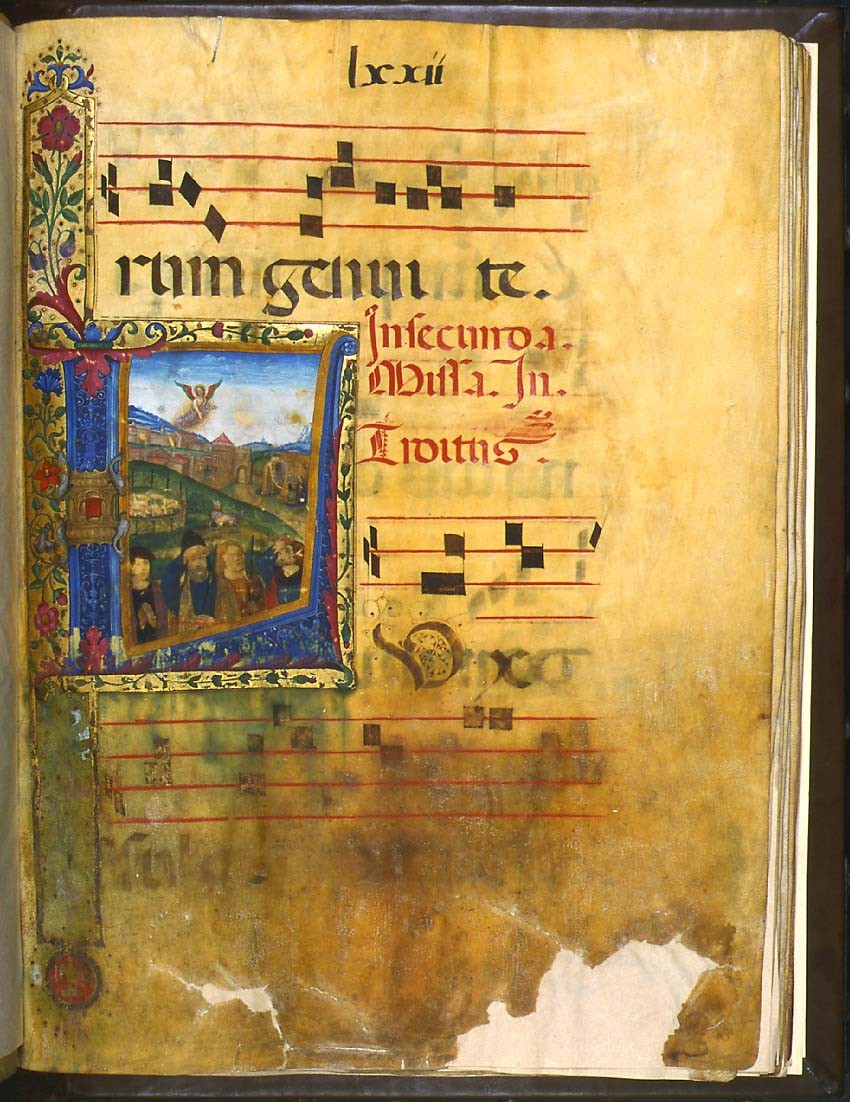 lxxii
rum genui te.
In secunda.
Missa. In.
troitus.
L
Vx